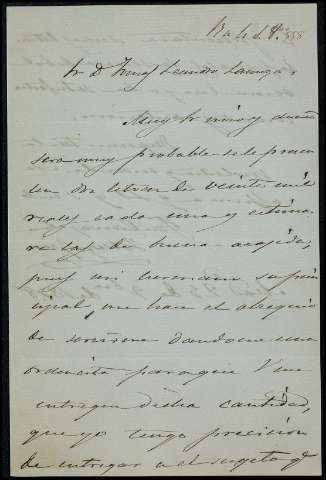 Sr D Tomas Leandro
Muy Sr mio y dueño
sera muy probable se le presen
ten dos letras de veinte mil
reales cada una y estima
re las de buena acojida,
pues mi hermano su prin
cipal, me hace el obsequio
de servirme dandome una
ordencita para que Vme
entregue dicha cantidad,
que yo tengo precision
de entregar a el sugeto qe